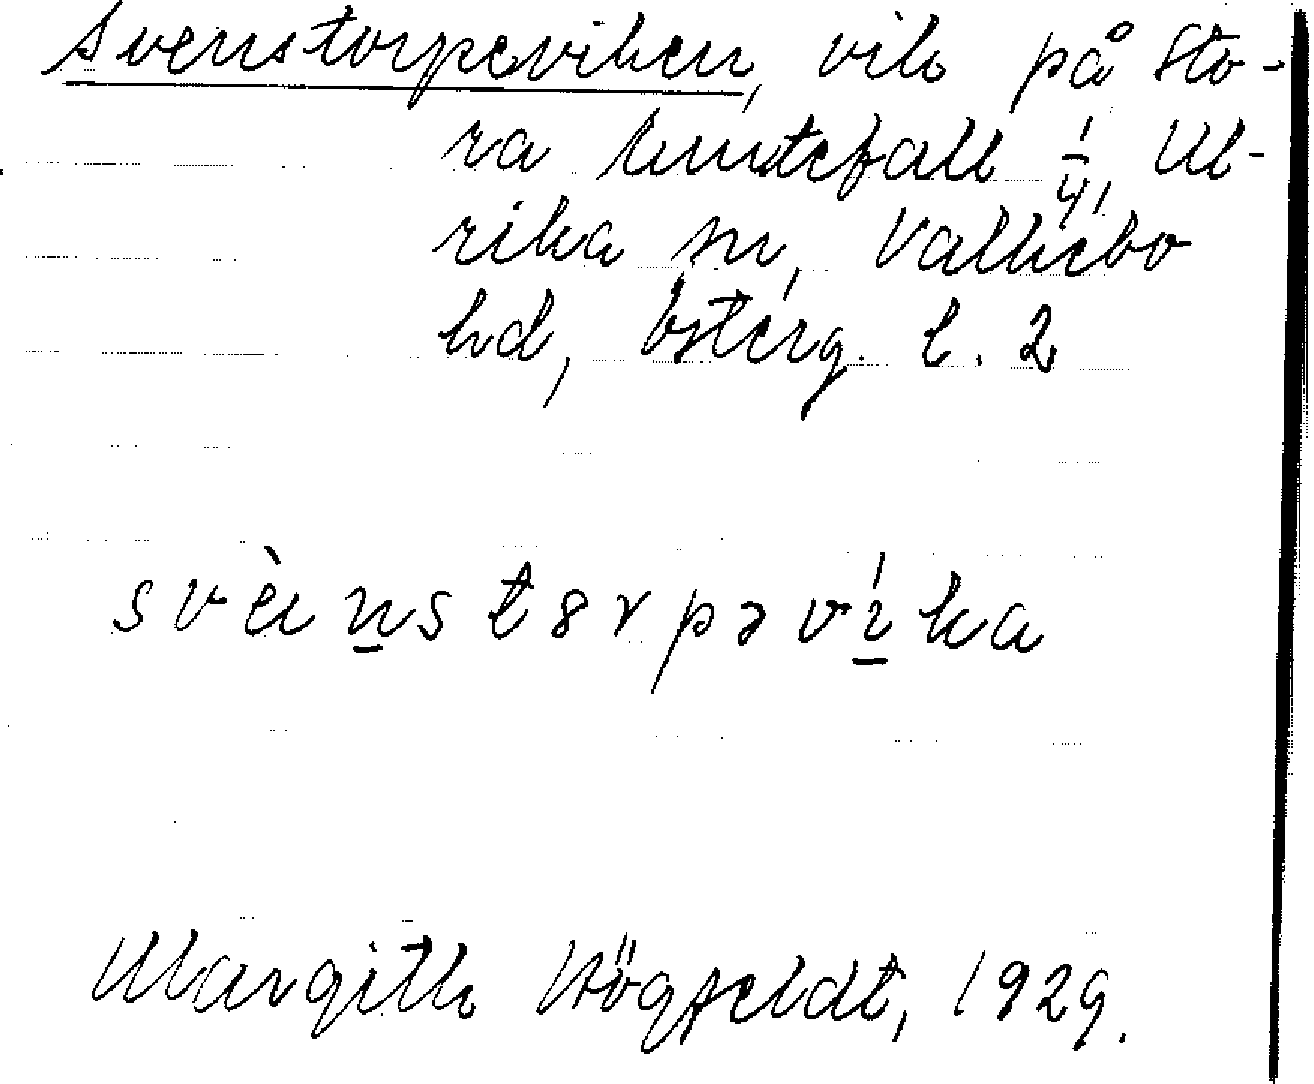 Svenstorpeviken, vik på Sto-
ra Kuntefall 1/4, Ul-
rika sn, Valkebo
hd, Österg. l. 2
svènstɤrpəvíka
Margith Högfeldt, 1929.